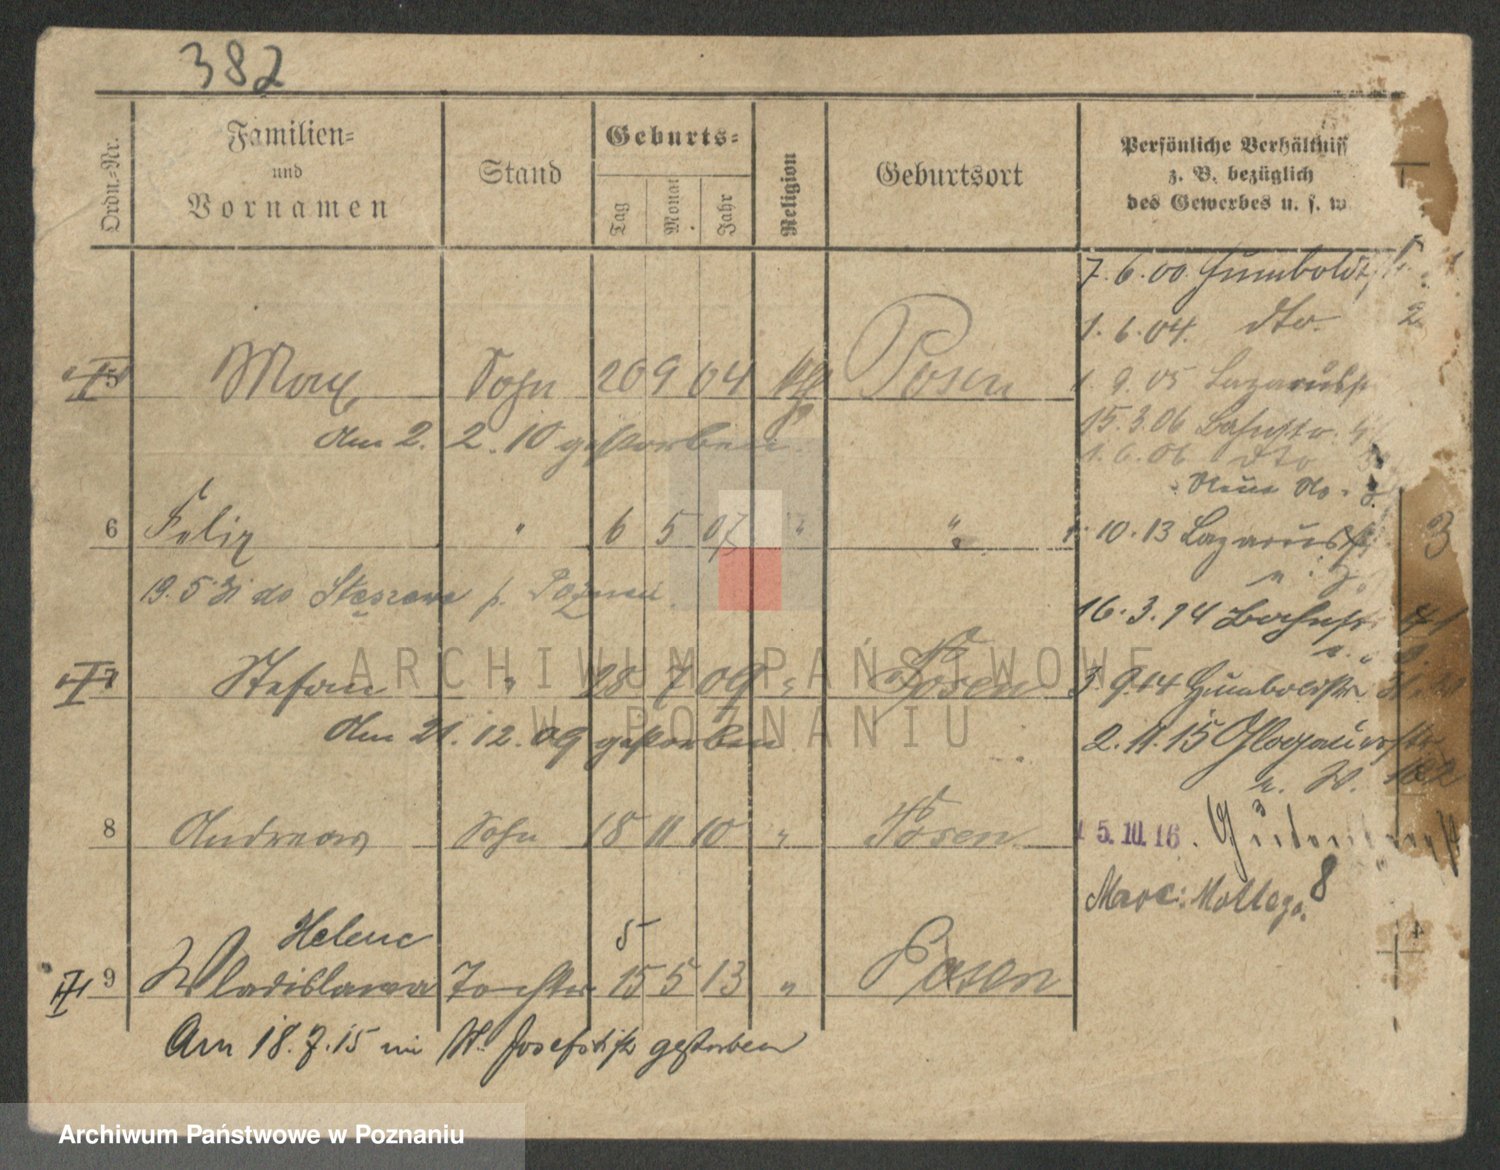 382
Ordn.-Nr.
Familien-
und
Vornamen
Stand
Geburts-
Tag
Monat
Jahr
Religion
Geburtsort
Persönliche Verhältniss
z. B. bezüglich
des Gewerbes u. s. w.
7. 6. 00. Humboldt
1. 6. 04. dto. 2
5 Max Sohn 20 9 04 kth Posen
1. 9. 05 Lazarusstr
am 2. 2. 10 gestorben
15. 3. 06 Bahnstr.
1. 6. 06 dto
Neue No.
6 Felix " 6 5 07 " "
1. 10. 13 Lazarusstr 3
19. 5 31 do Stęszewa p. Poznań.
16. 3. 14 Bahnstr. 41
7 Stefan " 28 7 09 " Posen
3. 9. 14 Humboldtstr
am 21. 12. 09 gestorben
2. 11. 15 Glogauerstr.
n. W. 102
8 Andreas Sohn 18 11 10 " Posen
15. 10. 16.
Marc. Mottego. 8
Helene 5
9 Wladislawa Tochter 15 5 13 " Posen
4
Am 18. 7. 15 im St. Josefstift gestorben
ARCHIWUM PAŃSTWOWE
W POZNANIU
Archiwum Państwowe w Poznaniu